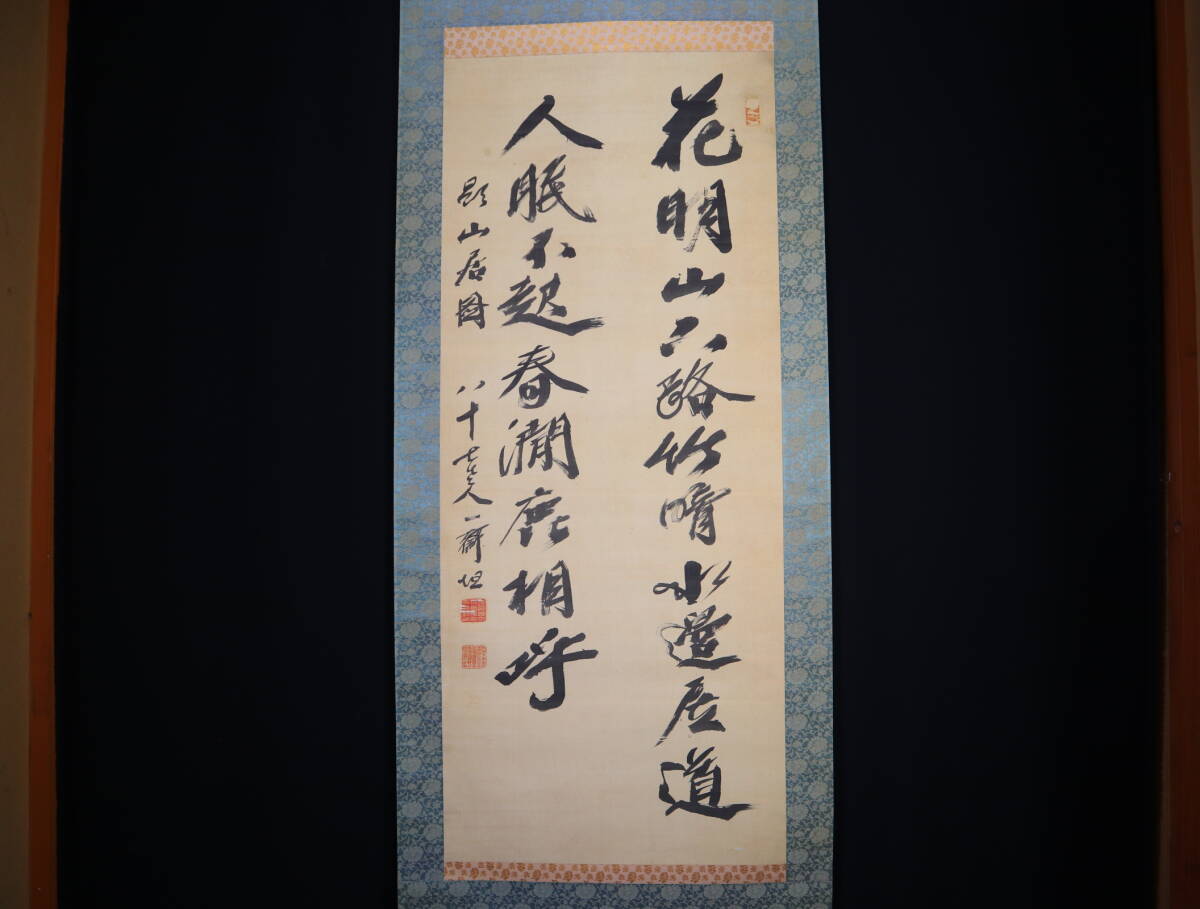 花明山下路竹暗水邊居道
人眠不起春澗鹿相呼
題山居圖 八十七老人一齋坦